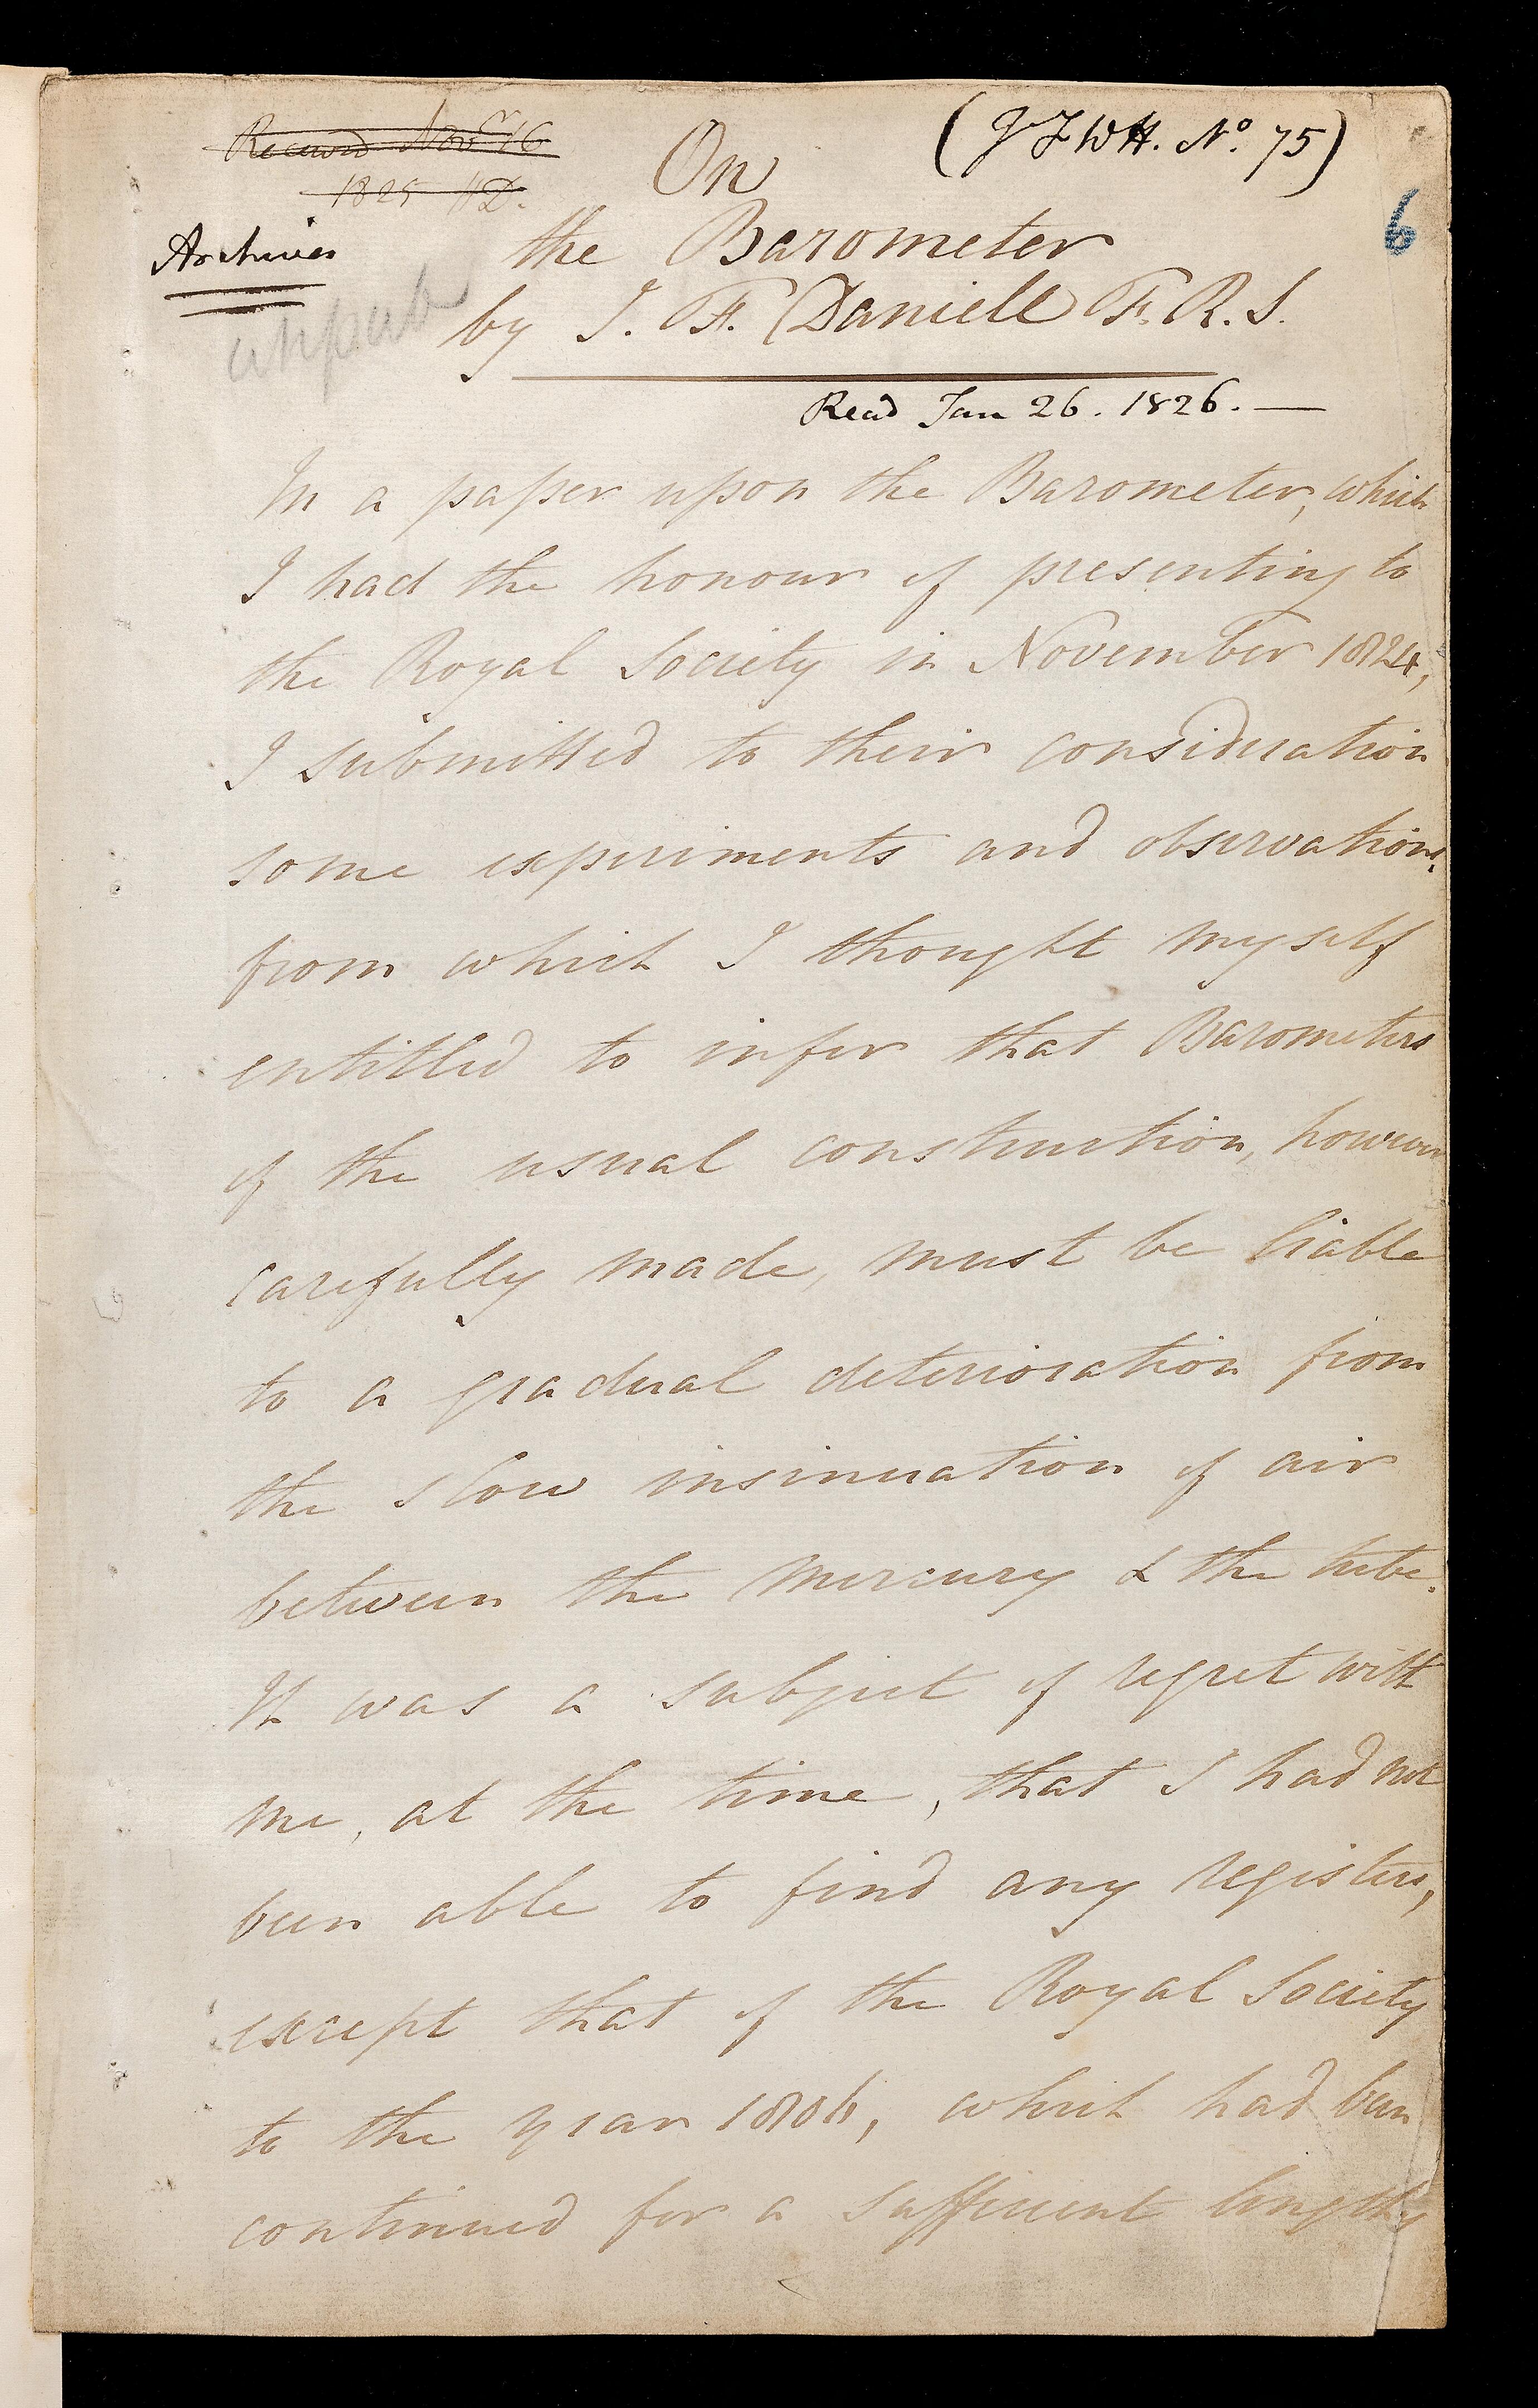 Received Nov.r 16
1825 HD.
Archives
unpub
(JFWH. No. 75)
6
On
the Barometer
by J. F. Daniell F.R.S.
Read Jan 26. 1826. —
In a paper upon the Barometer, which
I had the honour of presenting to
the Royal Society in November 1824,
I submitted to their consideration
some experiments and observations,
from which I thought myself
entitled to infer that Barometers
of the usual construction, however
carefully made, must be liable
to a gradual deterioration from
the slow insinuation of air
between the mercury & the tube.
It was a subject of regret with
me, at the time, that I had not
been able to find any registers,
except that of the Royal Society
to the year 1806, which had been
continued for a sufficient length